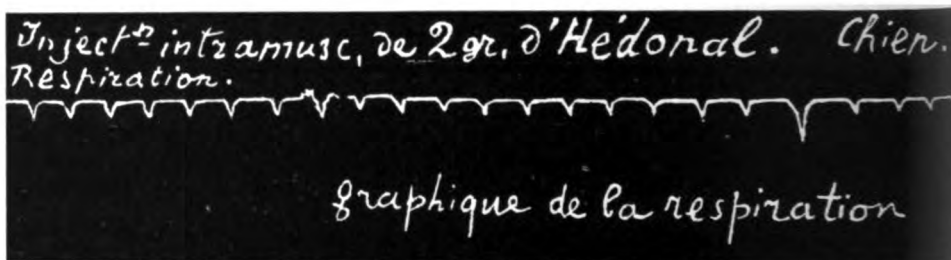 Inject.n intramusc, de 2 gr, d'Hédonal. Chien.
Respiration.
graphique de la respiration